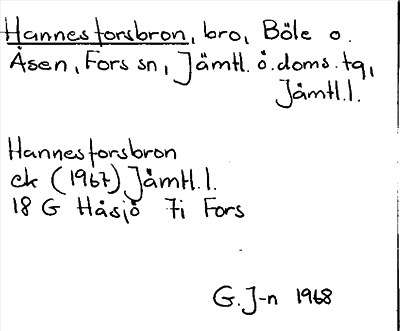 Hannesforsbron, bro, Böle o.
Åsen, Fors sn, Jämtl. ö. doms. tg,
Jämtl. l.
Hannesforsbron
ek (1967) Jämtl. l.
18 G Håsjö 7i Fors
G. J-n 1968